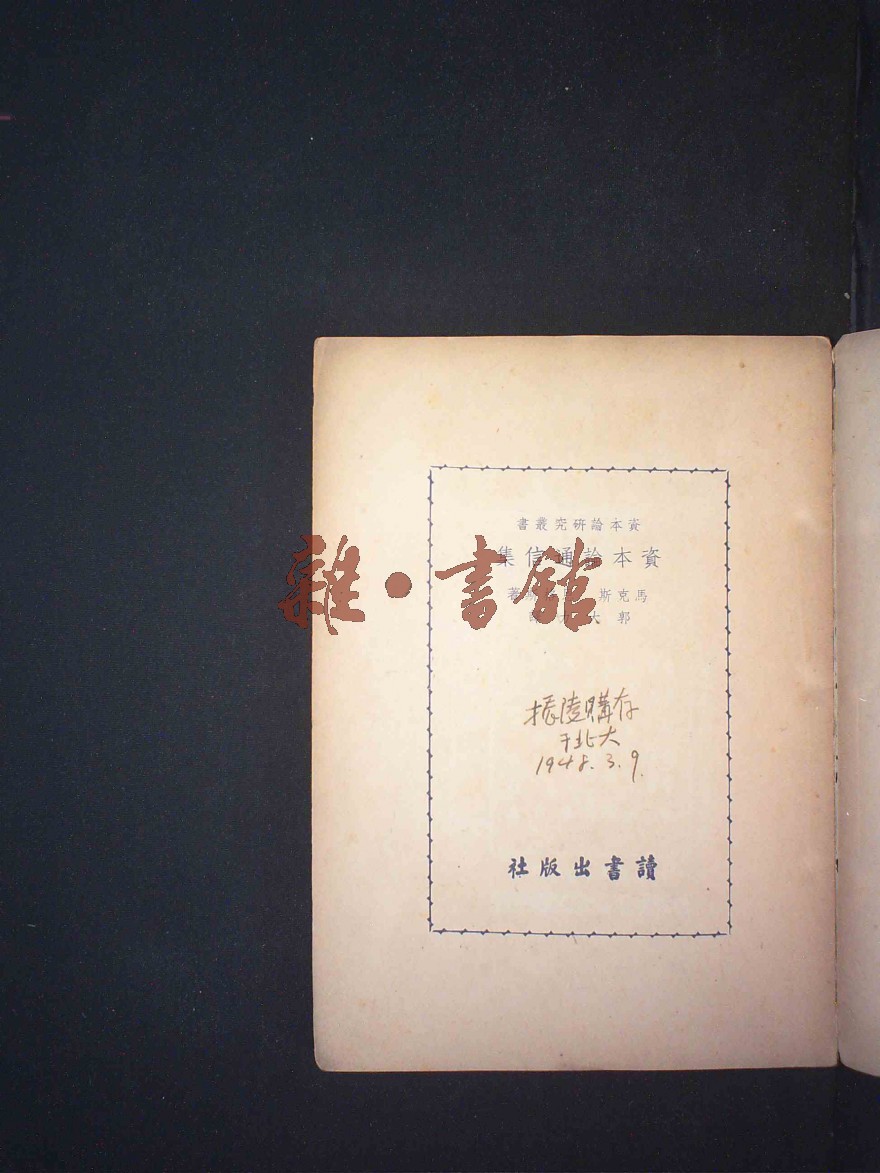 資本論研究叢書
資本論通信集
馬克斯 著
郭大
雜·書館
振陵購存
于北大
1948.3.9.
讀書出版社